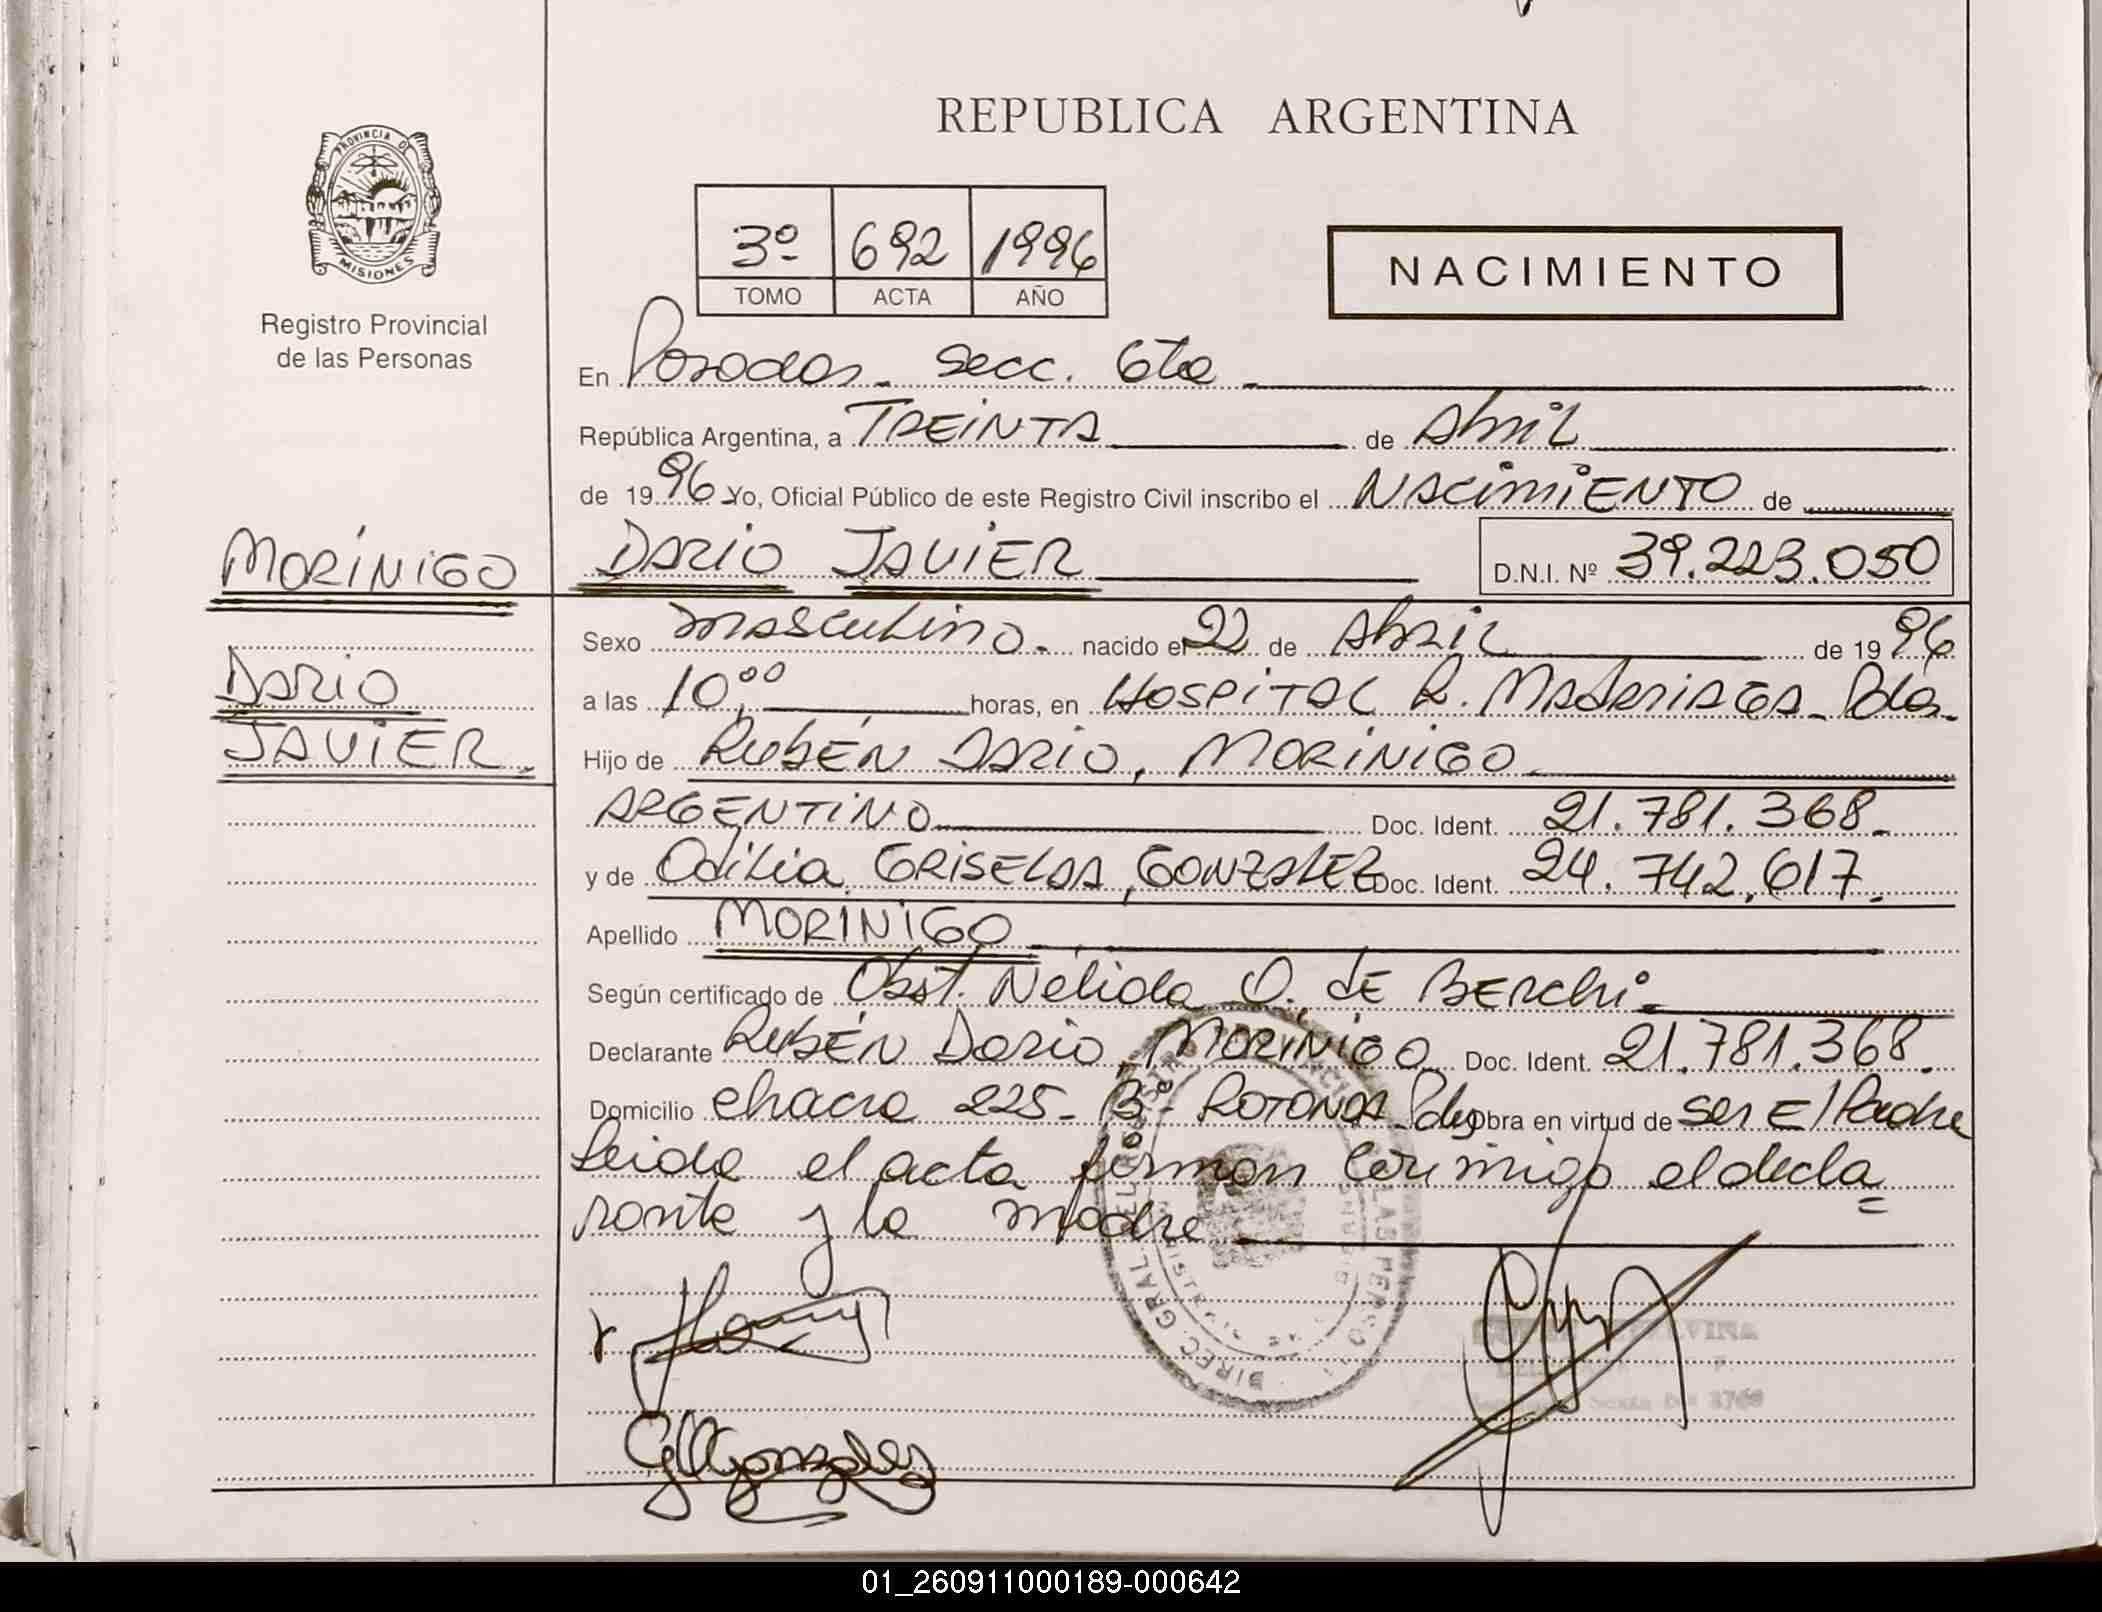 REPUBLICA ARGENTINA
PROVINCIA D
MISIONES
Registro Provincial
de las Personas
3º 692 1996
TOMO ACTA AÑO
NACIMIENTO
En Posadas - Secc. 6ta
República Argentina, a TREINTA de Abril
de 1996 Yo, Oficial Público de este Registro Civil inscribo el NACIMIENTO de
MORÍNIGO
DARIO JAVIER
DARIO JAVIER D.N.I. Nº 39.223.050
Sexo masculino. nacido el 22 de Abril de 1996
a las 10,00 horas, en HOSPITAL R. MADARIAGA - Pdas.
Hijo de RUBÉN DARIO, MORÍNIGO
ARGENTINO Doc. Ident. 21.781.368.
y de Odilia GRISELDA, GONZALEZ Doc. Ident. 24.742.617.
Apellido MORINIGO
Según certificado de Obst. Nélida O. de BERCHI.
Declarante RUBÉN Dario, MORÍNIGO Doc. Ident. 21.781.368.
Domicilio chacra 225 - Bº - ROTONDA Pdas Obra en virtud de ser El Padre
Leída el acta firman conmigo el decla=
rante y la madre
DIREC. GRAL. DEL REGISTRO
GMGonzalez
01_260911000189-000642